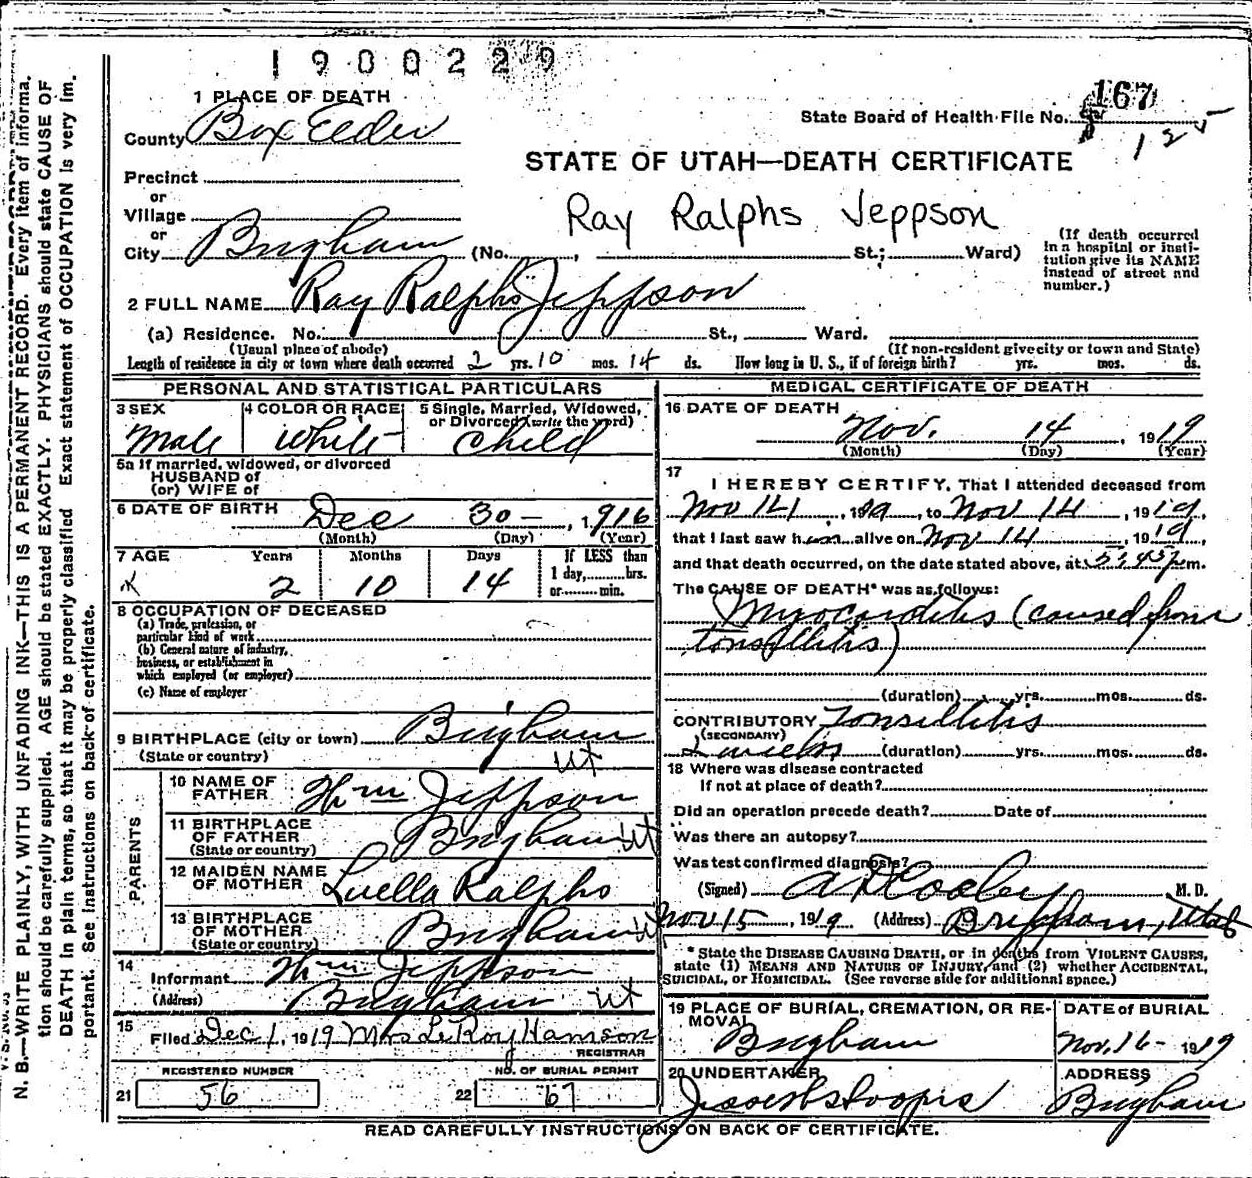 1900229
1 PLACE OF DEATH
County Box Elder
State Board of Health File No. 167
125
STATE OF UTAH—DEATH CERTIFICATE
Precinct
or
Village
or
City Brigham (No. , St.; Ward)
Ray Ralphs Jeppson
(If death occurred
in a hospital or insti-
tution give its NAME
instead of street and
number.)
2 FULL NAME Ray Ralphs Jeppson
(a) Residence. No. St., Ward.
(Usual place of abode) (If non-resident give city or town and State)
Length of residence in city or town where death occurred 2 yrs. 10 mos. 14 ds. How long in U. S., if of foreign birth? yrs. mos. ds.
PERSONAL AND STATISTICAL PARTICULARS
3 SEX 4 COLOR OR RACE 5 Single, Married, Widowed,
or Divorced (write the word)
Male White Child
5a If married, widowed, or divorced
HUSBAND of
(or) WIFE of
6 DATE OF BIRTH Dec 30 - , 1916
(Month) (Day) (Year)
7 AGE Years Months Days If LESS than
1 day, hrs.
or min.
2 10 14
8 OCCUPATION OF DECEASED
(a) Trade, profession, or
particular kind of work
(b) General nature of industry,
business, or establishment in
which employed (or employer)
(c) Name of employer
9 BIRTHPLACE (city or town) Brigham
(State or country) Ut
PARENTS
10 NAME OF
FATHER Wm Jeppson
11 BIRTHPLACE
OF FATHER Brigham Ut
(State or country)
12 MAIDEN NAME
OF MOTHER Luella Ralphs
13 BIRTHPLACE
OF MOTHER Brigham Ut
(State or country)
14
Informant Wm Jeppson
(Address) Brigham Ut
15
Filed Dec 1, 1919 Mrs LeRoy Hamson
REGISTRAR
REGISTERED NUMBER NO. OF BURIAL PERMIT
21 56 22 67
MEDICAL CERTIFICATE OF DEATH
16 DATE OF DEATH
Nov. 14 , 1919
(Month) (Day) (Year)
17
I HEREBY CERTIFY, That I attended deceased from
Nov 14 , 1919, to Nov 14 , 1919,
that I last saw him alive on Nov 14 , 1919,
and that death occurred, on the date stated above, at 5:45 p m.
The CAUSE OF DEATH* was as follows:
Myocarditis (caused from
tonsillitis)
(duration) yrs. mos. ds.
CONTRIBUTORY Tonsillitis
(SECONDARY)
(duration) yrs. mos. ds.
18 Where was disease contracted
If not at place of death?
Did an operation precede death? Date of
Was there an autopsy?
Was test confirmed diagnosis?
(Signed) A D Cooley M. D.
Nov 15 , 1919 (Address) Brigham, Utah
* State the DISEASE CAUSING DEATH, or in deaths from VIOLENT CAUSES,
state (1) MEANS AND NATURE OF INJURY, and (2) whether ACCIDENTAL,
SUICIDAL, or HOMICIDAL. (See reverse side for additional space.)
19 PLACE OF BURIAL, CREMATION, OR RE-
MOVAL
Brigham
DATE OF BURIAL
Nov. 16 - 1919
20 UNDERTAKER
ADDRESS
Brigham
READ CAREFULLY INSTRUCTIONS ON BACK OF CERTIFICATE.
N. B.—WRITE PLAINLY, WITH UNFADING INK—THIS IS A PERMANENT RECORD. Every item of informa-
tion should be carefully supplied. AGE should be stated EXACTLY. PHYSICIANS should state CAUSE OF
DEATH in plain terms, so that it may be properly classified Exact statement of OCCUPATION is very im-
portant. See instructions on back of certificate.